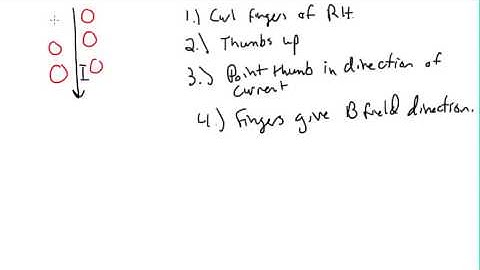 1.) Curl fingers of RH
2.) Thumbs up
3.) Point thumb in direction of
current
I
4.) Fingers give B field direction.